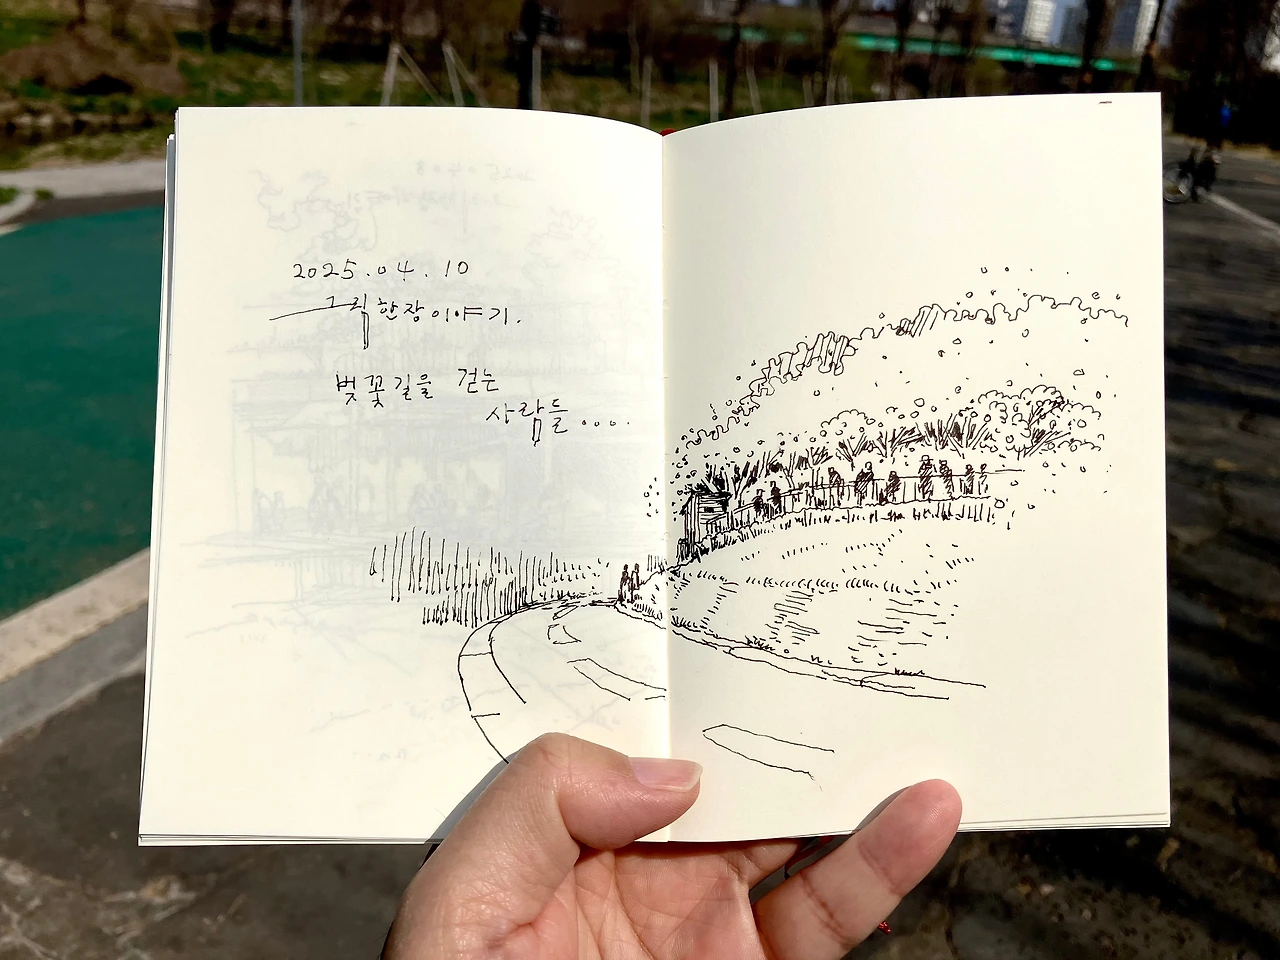 2025.04.10
그림 한장 이야기.
벚꽃길을 걷는
사람들....